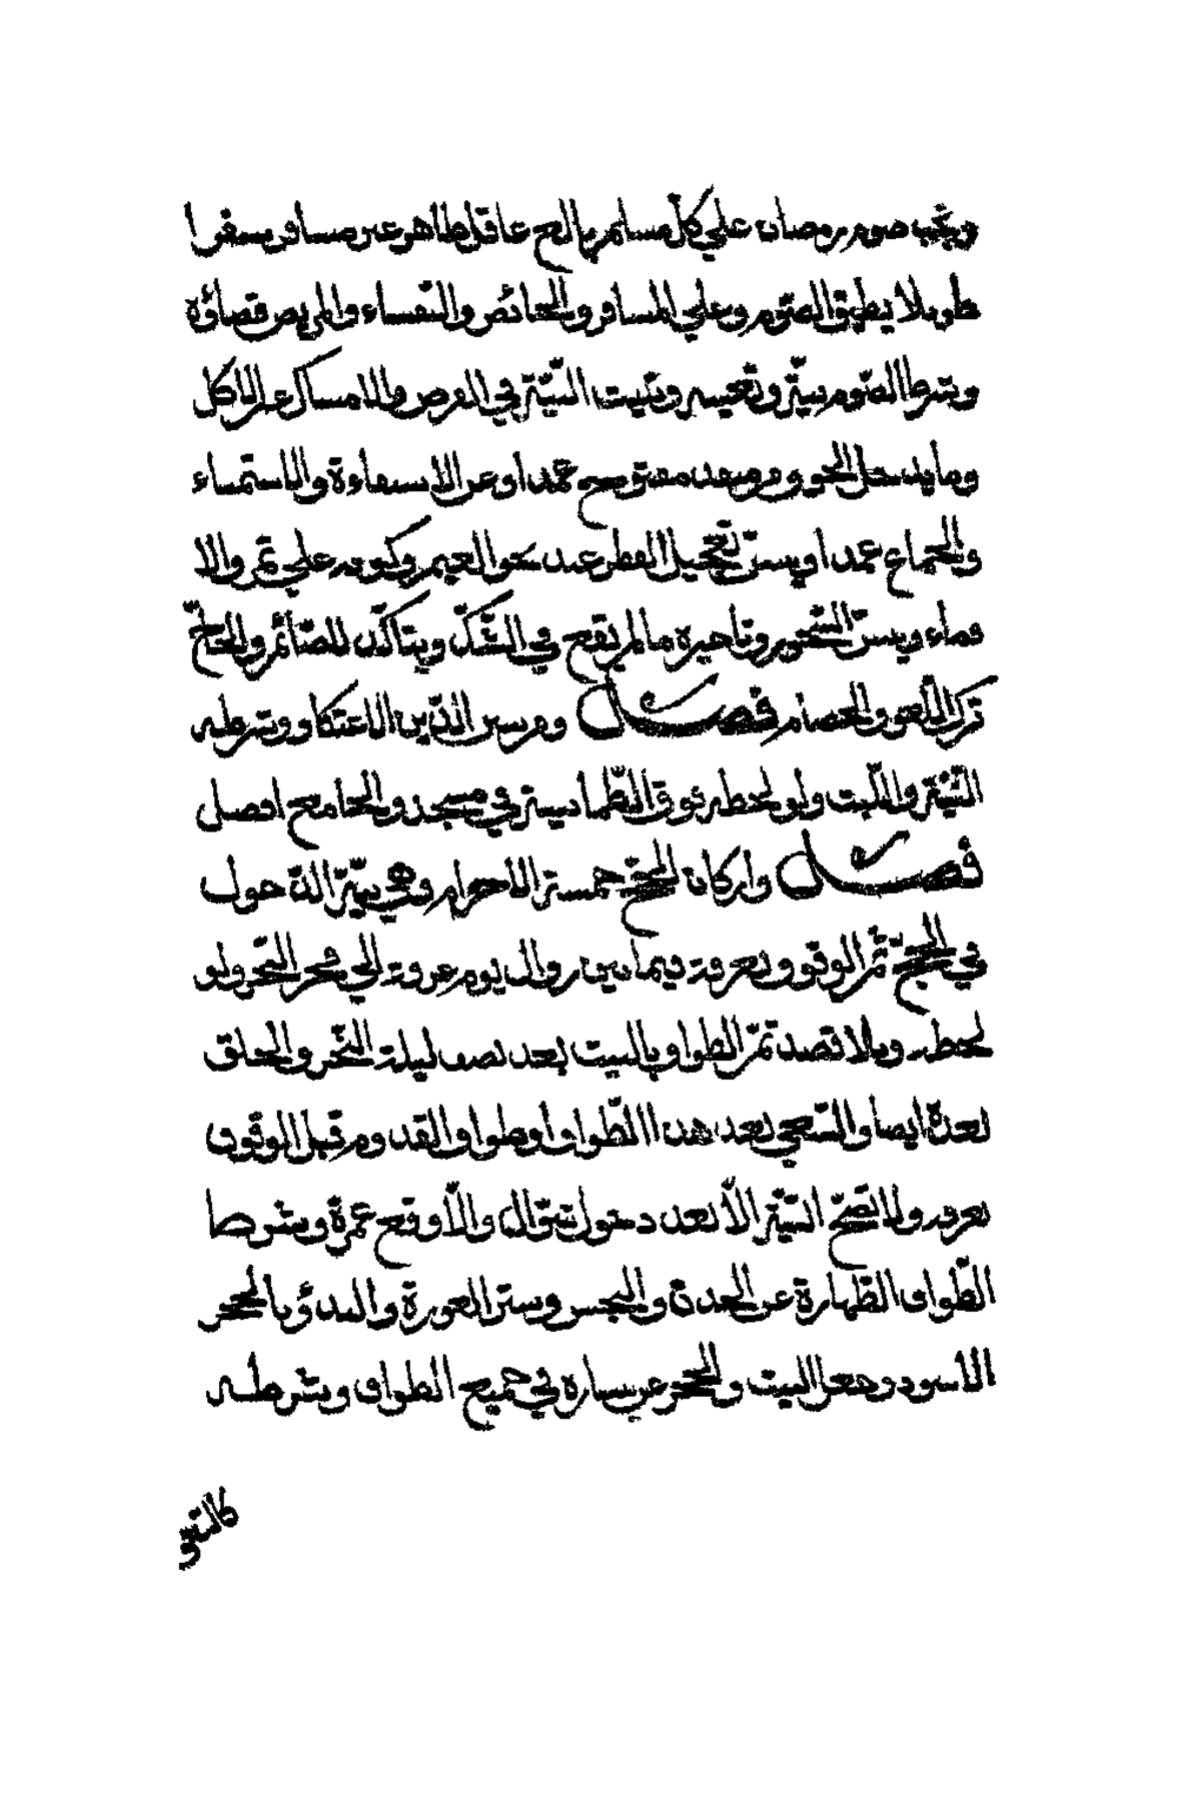 ويجب صوم رمضان علي كل مسلم بالغ عاقل طاهر غير مسافر سفرا
طويلا يطيق الصّوم وعلي المسافر والحائض والنّفساء والمريض قضاؤه
وشرط الصّوم نيّة وتعيينه وتبييت النّيّة في الفرض والامساك عن الاكل
وما يدخل الجوف من منفذ مفتوح عمدا وعن الاستقاءة والاستمناء
والجماع عمدا ويسنّ تعجيل الفطر عند تحقق الغيم وكونه علي تمر والا
فماء ويسنّ السّحور وتاخيره ما لم يقع في الشّكّ ويتاكّد للصّائم والحاجّ
ترك اللّغو والخصام فصل ومن سنن الدّين الاعتكاف وشرطه
النّيّة واللّبث ولو لحظة فوق الطّمانينة في مسجد والجامع افضل
فصل واركان الحجّ خمسة الاحرام وهي نيّة الدّخول
في الحجّ ثمّ الوقوف بعرفة فيما بين زوال يوم عرفة الي فجر النّحر ولو
لحظة وبلا قصد ثمّ الطواف بالبيت بعد نصف ليلة النّحر والحلق
بعده ايضا والسّعي بعد هذا الطّواف او طواف القدوم قبل الوقوف
بعرفة ولا تصحّ النّيّة الاّ بعد دخول شوّال والّا وقع عمرة وشرط
الطّواف الطّهارة عن الحدث والنجس وستر العورة والبدؤ بالحجر
الاسود وجعل البيت والحجر عن يساره في جميع الطواف وشرطه